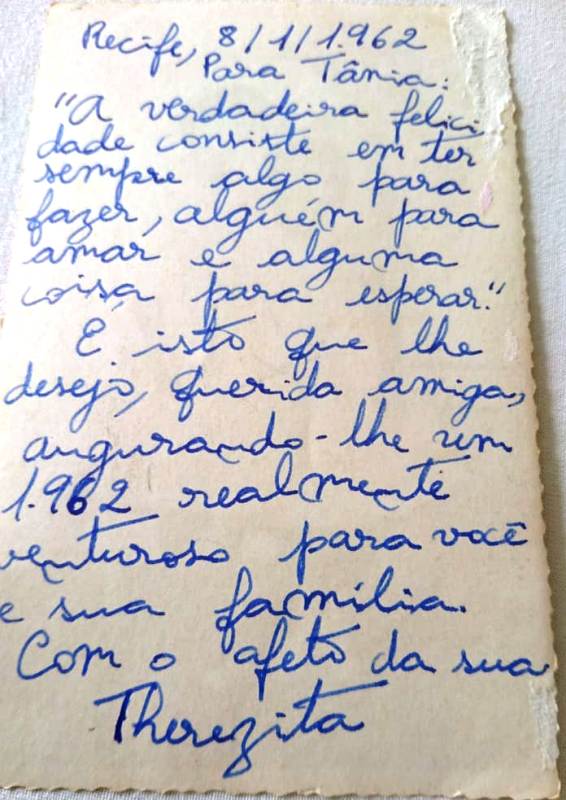 Recife, 8/1/1.962
Para Tânia:
"A verdadeira felici
dade consiste em ter
sempre algo para
fazer, alguém para
amar e alguma
coisa para esperar."
E isto que lhe
desejo, querida amiga,
augurando-lhe um
1.962 realmente
venturoso para você
e sua família.
Com o afeto da sua
Therezita